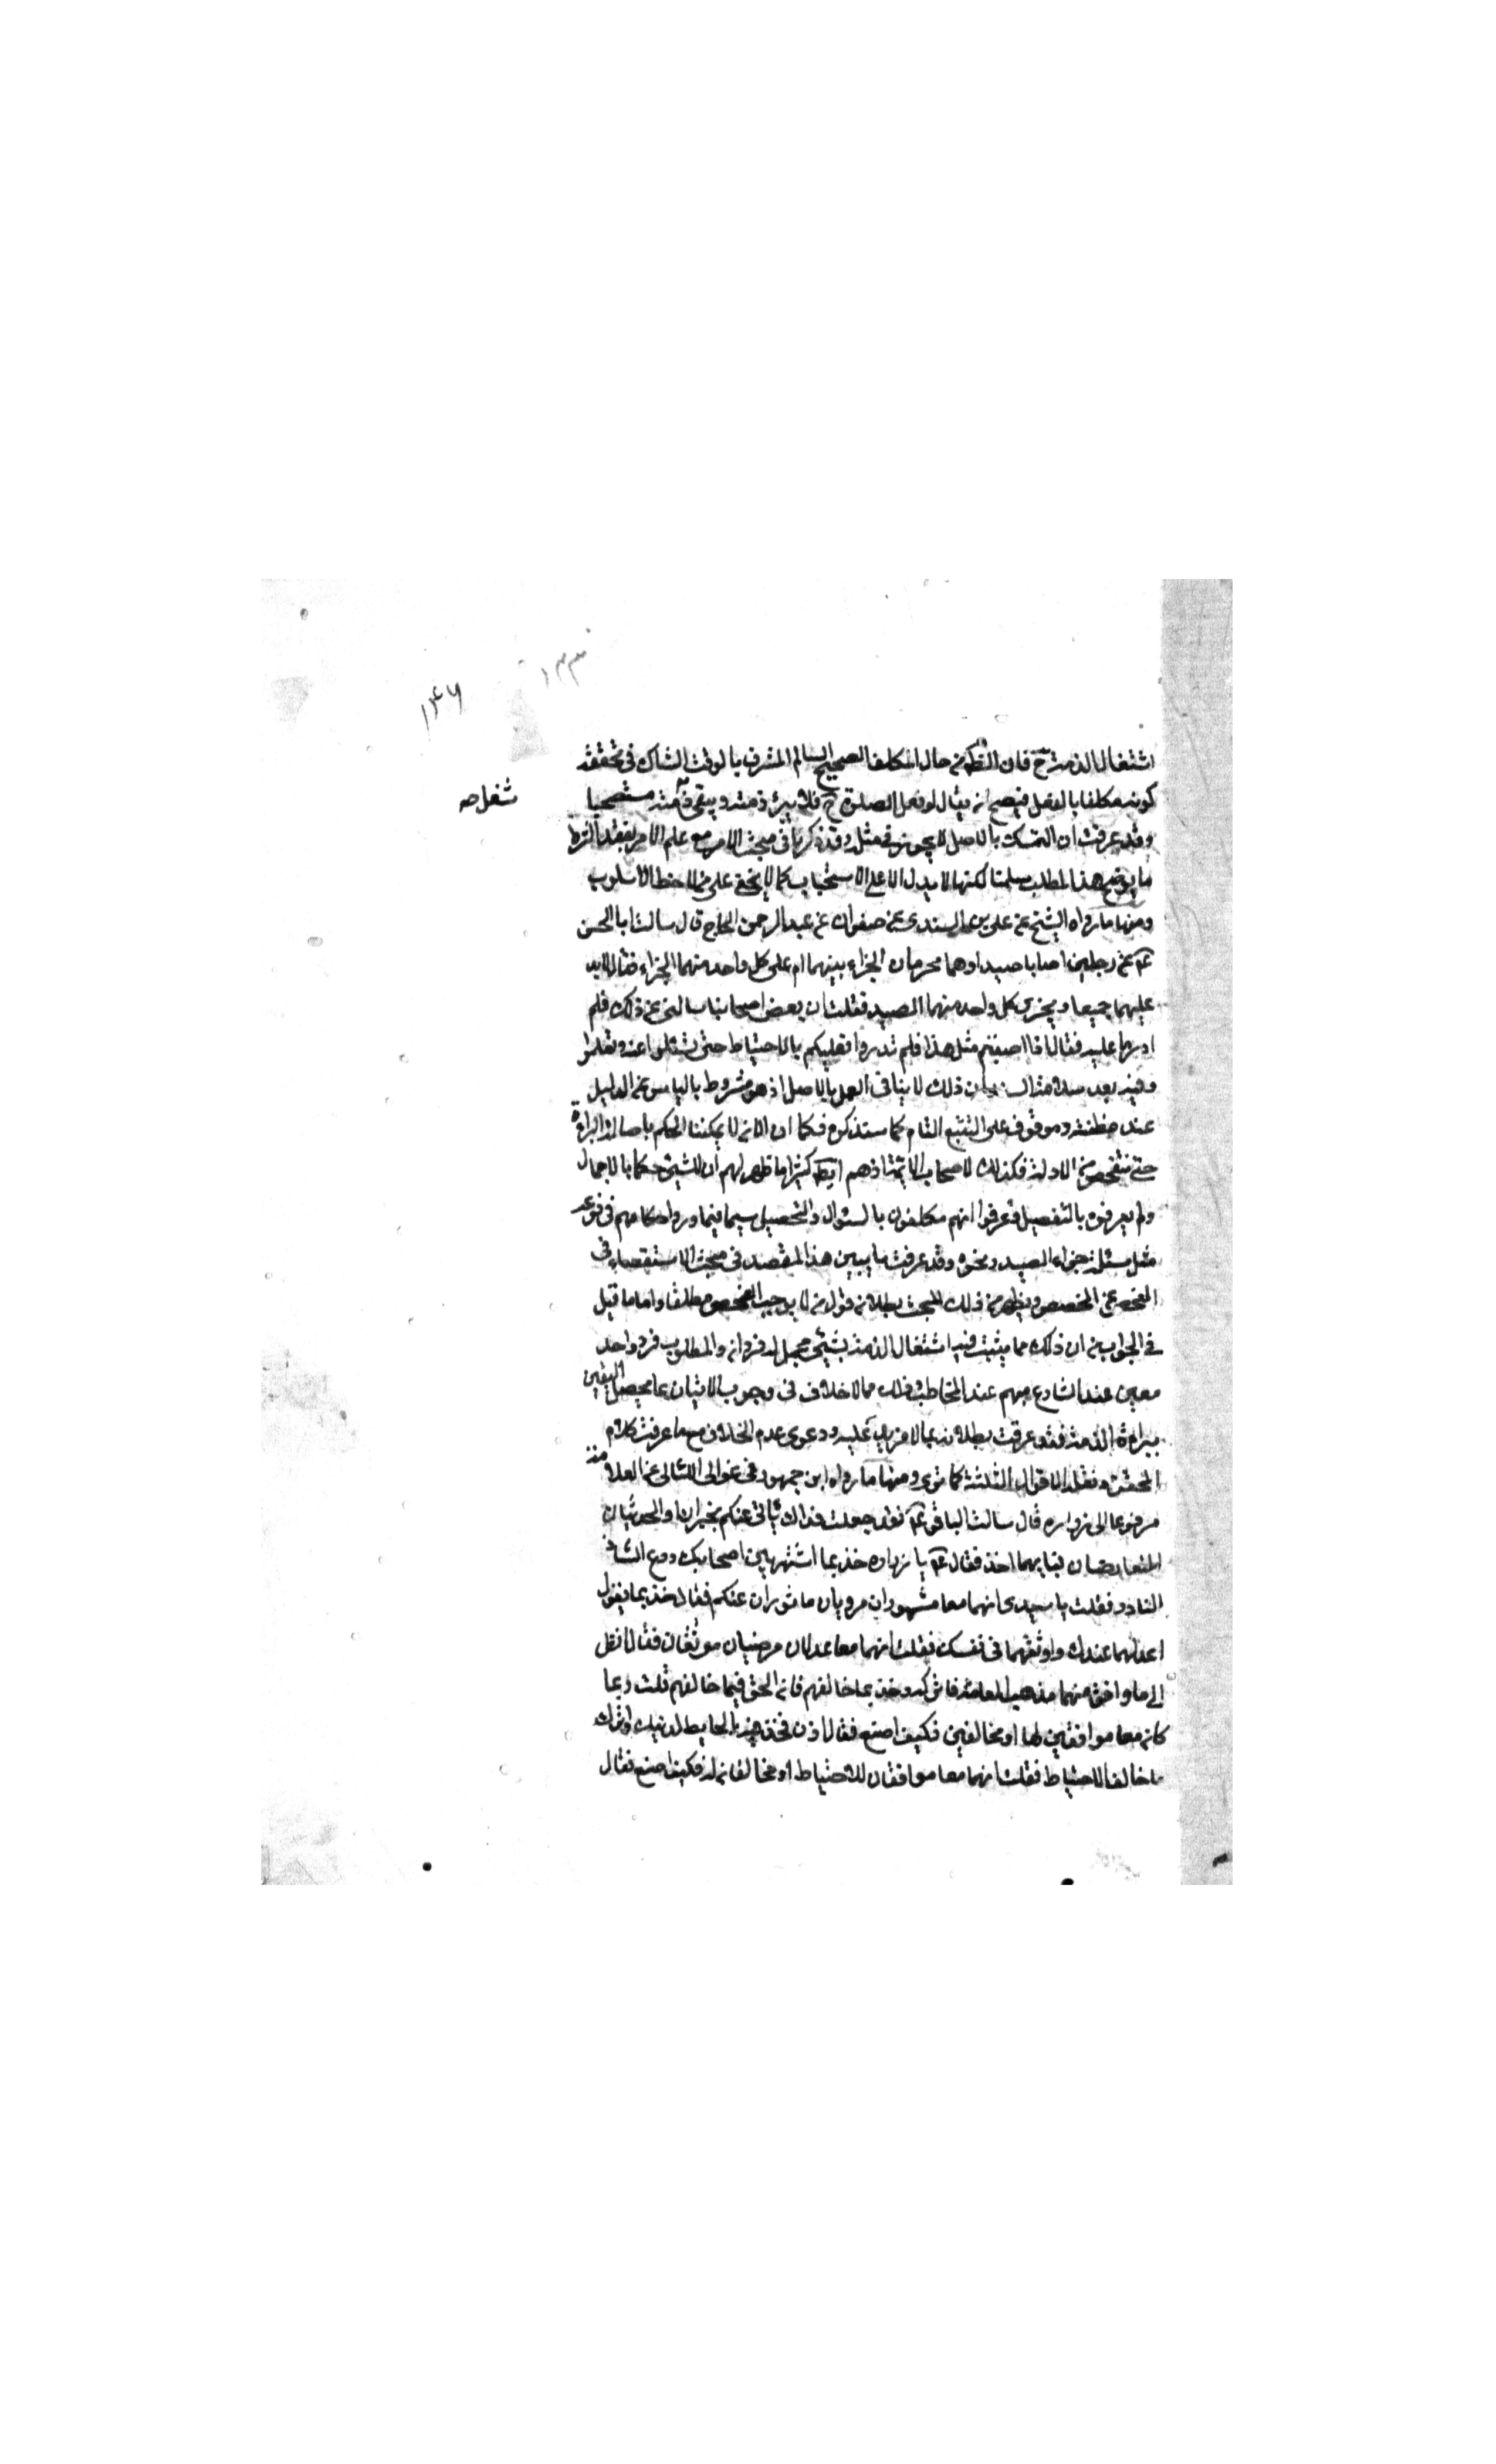 ١٣٣
١٤٦
اشتغال الذمة ح فان الظ من حال المكلف الصحيح السالم المشرف بالوقت الشاك في تحقق
كونه مكلفا بالفعل فيصح ان يقال لو فعل الصلوة ح فلا يبرئ ذمته ويبقى ذمته مستصحبا
شغل صه
وقد عرفت ان التمسك بالاصل لا يجوز في مثله وقد ذكرنا في مبحث الامر مع علم الامر بفقد الشرط
ما يوضح هذا المطلب سلمنا لكنها لا يدل الا على الاستحباب كما لا يخفى على من لاحظ الاسلوب
ومنها ما رواه الشيخ عن علي بن السندي عن صفوان عن عبد الرحمن الحاج قال سالت ابا الحسن
عم عن رجلين اصابا صيدا وهما محرمان الجزاء بينهما ام على كل واحد منهما الجزاء فقال لا بد
عليهما جميعا ويجزى كل واحد منهما الصيد فقلت ان بعض اصحابنا سالني عن ذلك فلم
ادر ما عليه فقال اذا اصبتم مثل هذا فلم تدروا فعليكم بالاحتياط حتى تسئلوا عنه وتعلموا
وفيه بعد سلامة ان ذلك لا ينافي العمل بالاصل اذ هو مشروط بالياس عن الدليل
عند مظنته وموقوف على التتبع التام كما سنذكره فكما ان الان لا يمكننا الحكم باصالة البراءة
حتى نتفحص من الادلة فكذلك لاصحاب الائمة اذهم ايض كثيرا ما ظهر لهم ان للشيئ حكما بالاجمال
ولم يعرفوه بالتفصيل وعرفوا انهم مكلفون بالسئوال والتحصيل سيما فيما ورد احكامهم في نوعه
مثل مسئلة جزاء الصيد ونحوه وقد عرفت ما يبين هذا المقصد في مبحث الاستقصاء في
الفحص عن المخصص ويظهر من ذلك المبحث بطلان قول من لا يوجب الفحص مطلقا واما ما قيل
في الجواب من ان ذلك مما يثبت فيه اشتغال الذمة بشيئ مجمل له فردان والمطلوب فرد واحد
معين عند الشارع مبهم عند المخاطب وذلك مما لا خلاف في وجوب الاتيان بما يحصل اليقين
ببراءة الذمة فقد عرفت بطلانه بما لا مزيد عليه ودعوى عدم الخلاف مع ما عرفت كلام
المحقق ونقله الاقوال الثلثة كما ترى ومنها ما رواه ابن جمهور في غوالي اللئالي عن العلامة
مرفوعا الى زرارة قال سالت الباقر عم فقد جعلت فداك ياتي عنكم الخبران او الحديثان
المتعارضان فبايهما اخذ فقال عم يا زرارة خذ بما اشتهر بين اصحابك ودع الشاذ
النادر فقلت يا سيدي انهما معا مشهوران مرويان ماثوران عنكم فقال خذ بما يقول
اعدلهما عندك واوثقهما في نفسك فقلت انهما معا عدلان مرضيان موثقان فقال انظر
الى ما وافق منهما مذهب العامة فاتركه وخذ بما خالفهم فان الحق فيما خالفهم قلت ربما
كان معا موافقين لها او مخالفين فكيف اصنع فقال اذن فخذ بما فيه الحايط لدينك واترك
ما خالف الاحتياط فقلت انهما معا موافقان للاحتياط او مخالفان له فكيف اصنع فقال